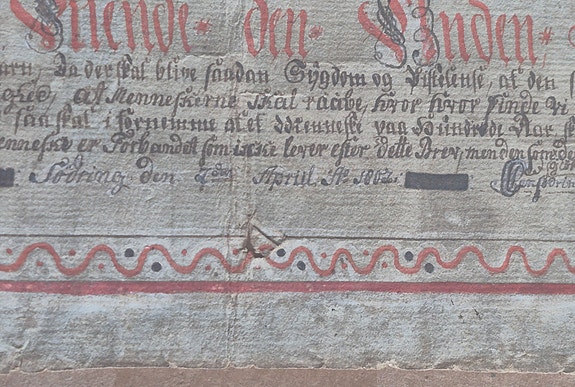 ende * den * Anden *
ärn, Da der skal blive saadan Sÿgdom og Pistelense, at den
at Menneskerne skal raabe, hvor hvor finde vi
saa skal i fornemme at et Menneske paa Hundrede Aar
enneske er Forbandet som ikke lever efter dette Brev, men den som det
Södring den April Ao 1802